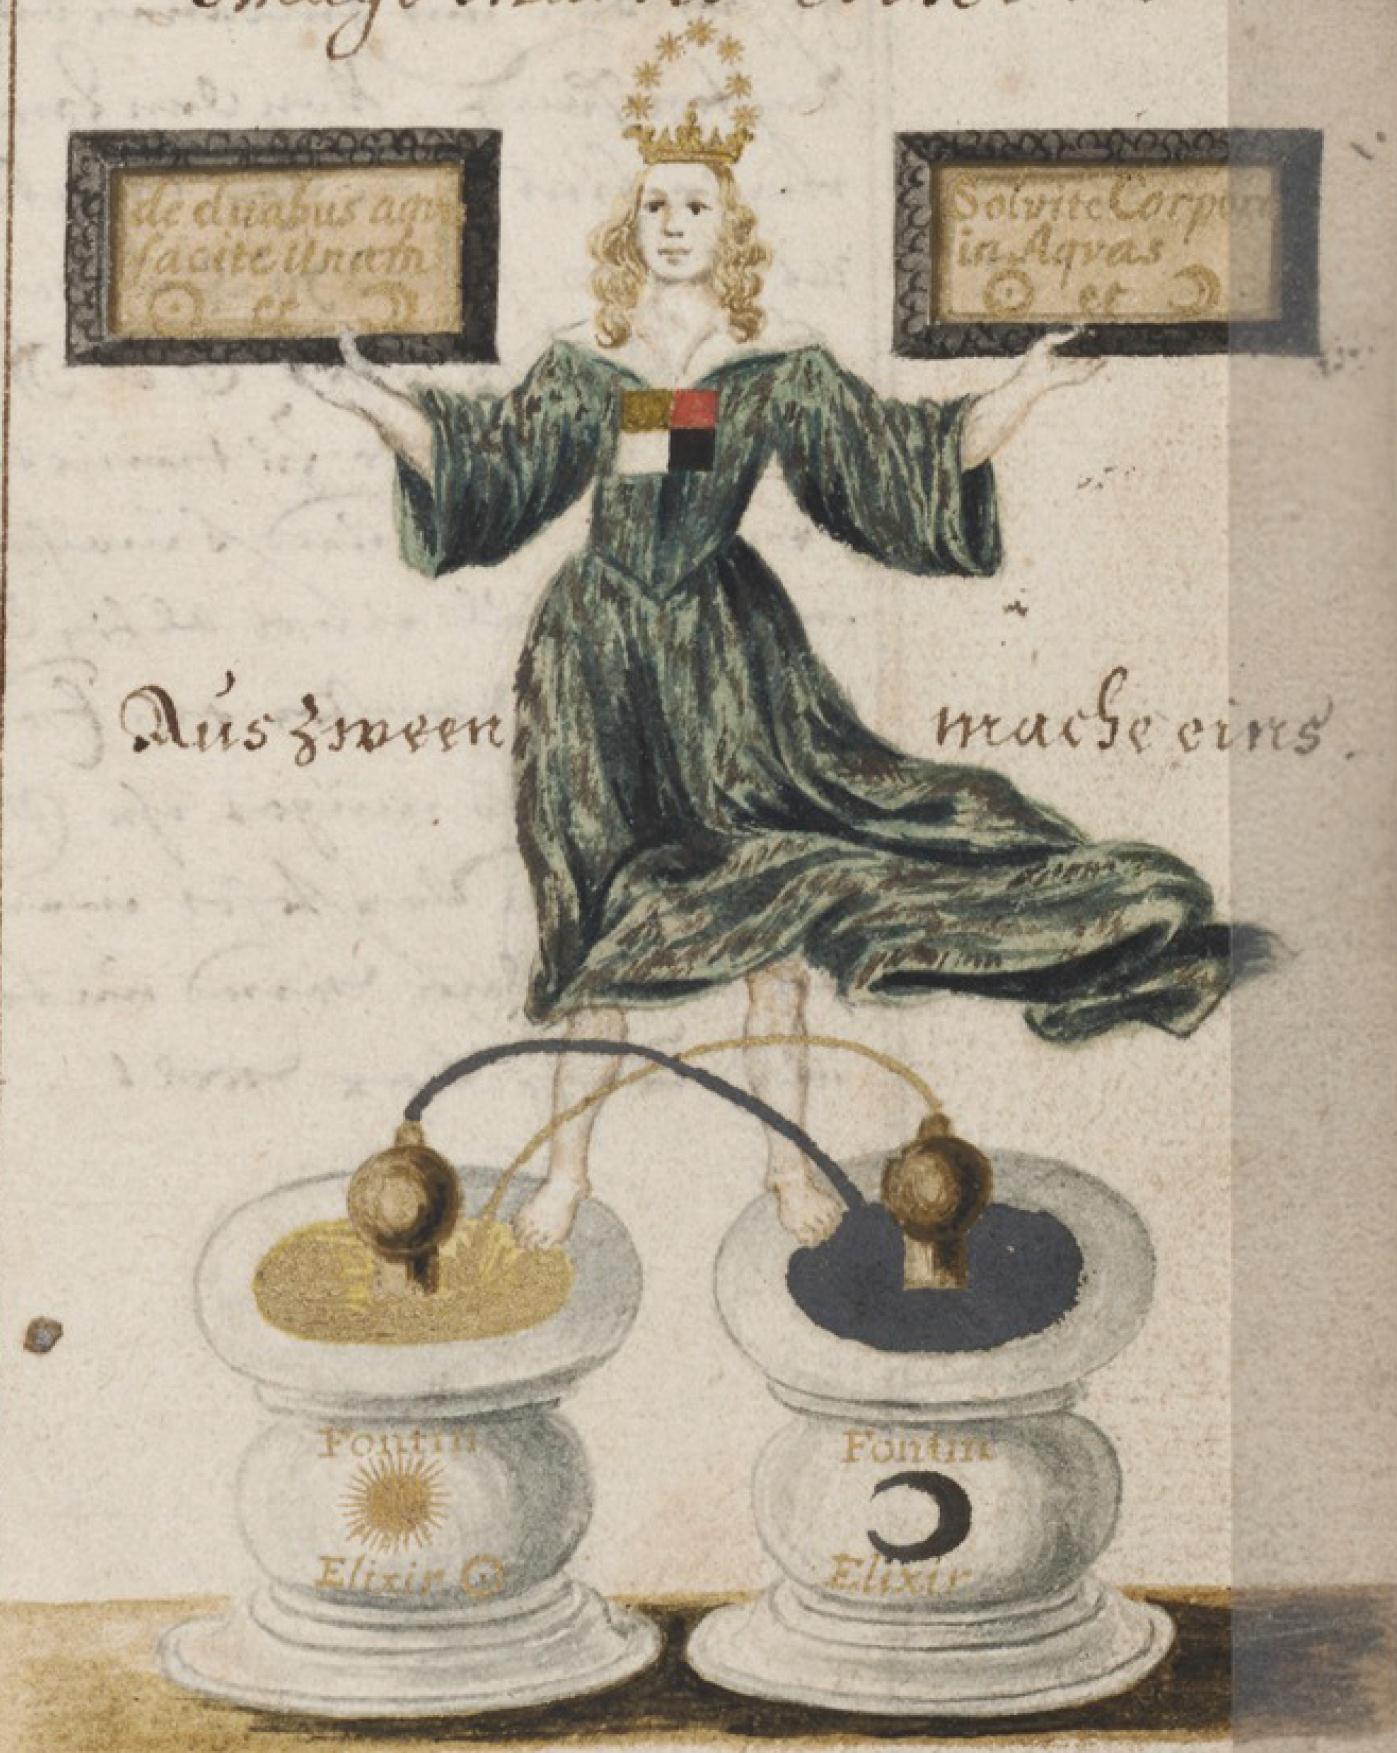 de duabus aqu
facite Unam
☉ et ☽
Solvite Corpora
in Aqvas
☉ et ☽
Aus zween mache eins.
Fontin
Elixir ☉
Fontin
Elixir